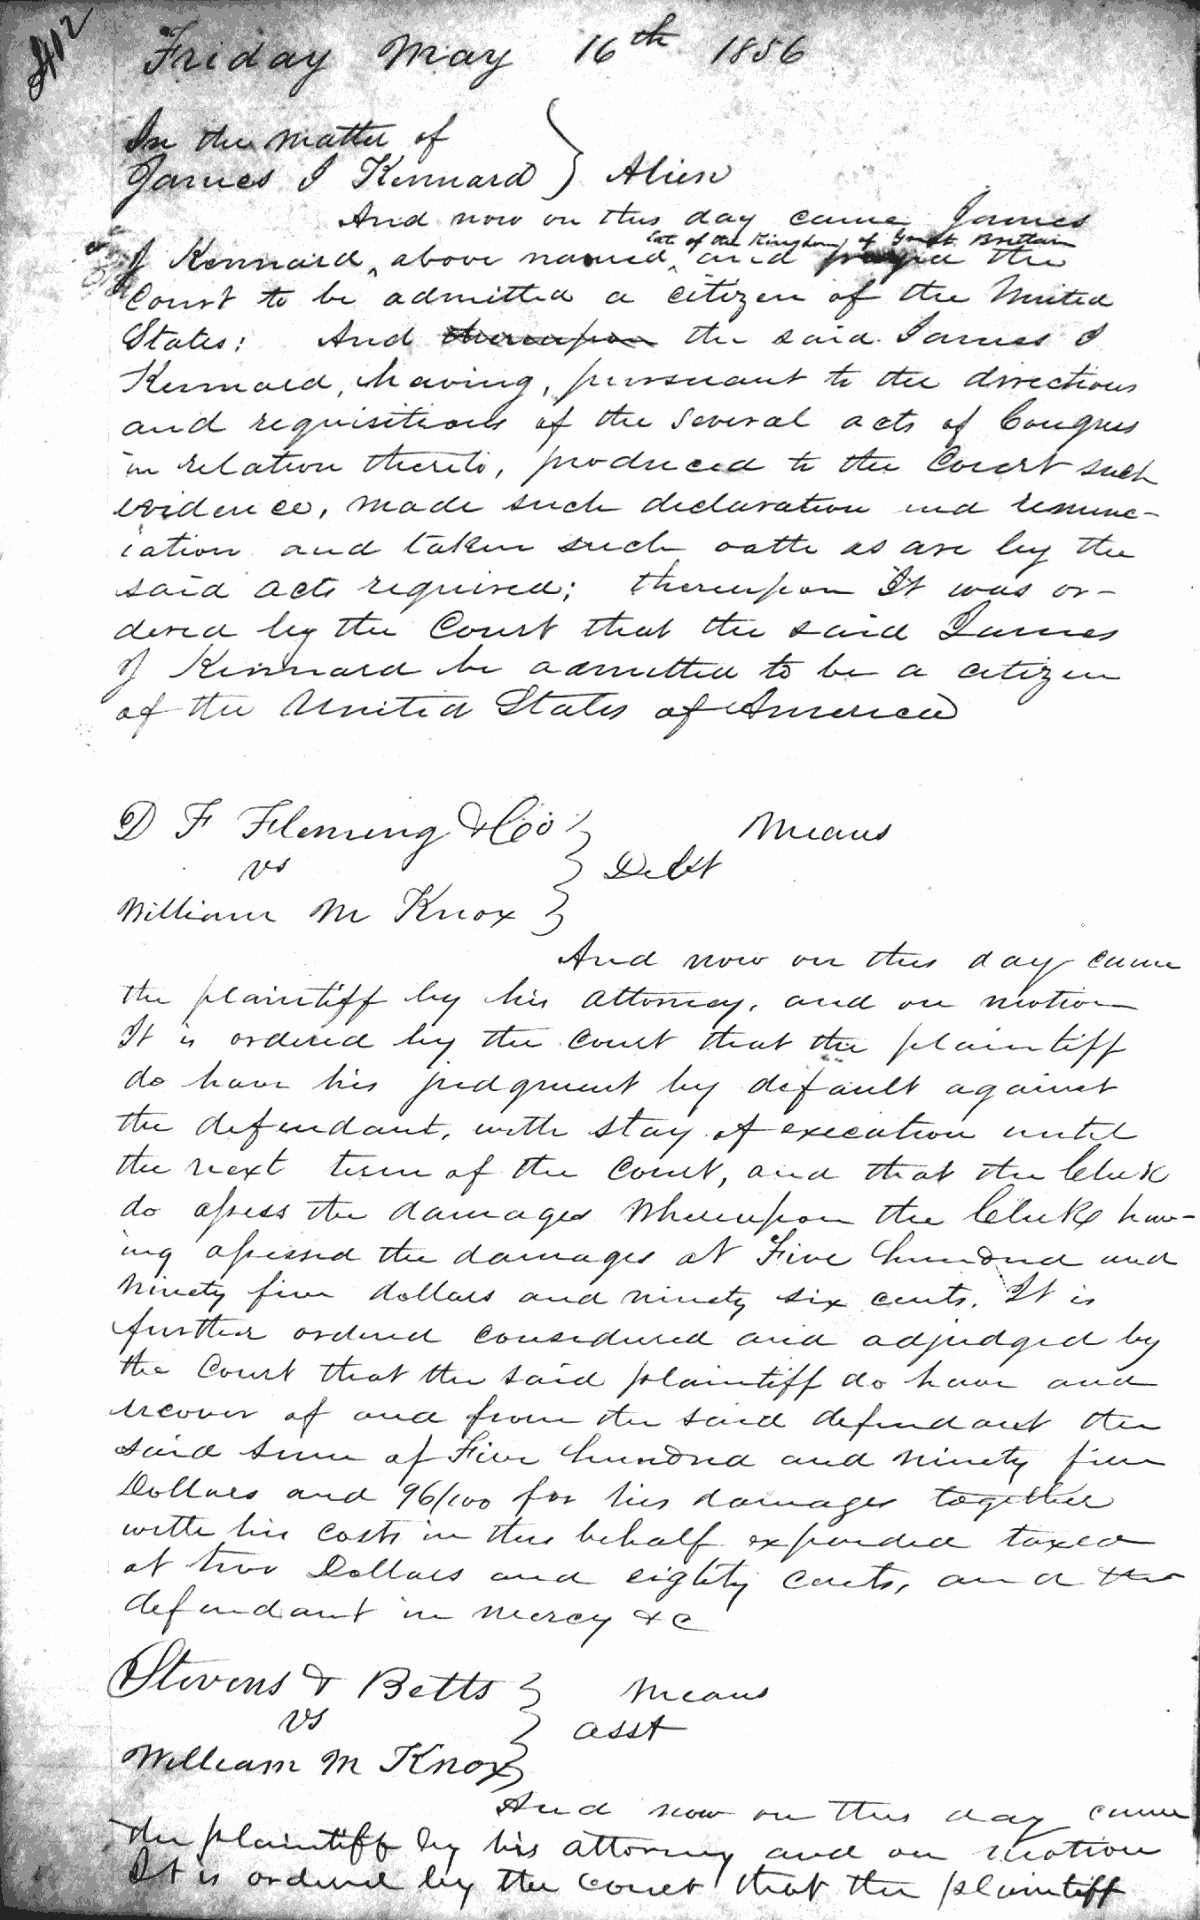 402
Friday May 16th 1856
In the matter of
James J Kennard } Alien
And now on this day came James
late of the Kingdom of Great Britain
J Kennard, above named, and prayed the
Court to be admitted a citizen of the United
States: And thereupon the said James J
Kennard, having, pursuant to the directions
and requisitions of the several acts of Congress
in relation thereto, produced to the Court such
evidence, made such declaration and renunc-
iation and taken such oath as are by the
said acts required; thereupon It was or-
dered by the Court that the said James
J Kennard be admitted to be a citizen
of the United States of America
D F Fleming & Co } Means
vs } Debt
William M Knox }
And now on this day came
the plaintiff by his attorney, and on motion
It is ordered by the court that the plaintiff
do have his judgment by default against
the defendant, with stay of execution until
the next term of the Court, and that the Clerk
do assess the damages Whereupon the Clerk hav-
ing assessed the damages at Five hundred and
ninety five dollars and ninety six cents. It is
further ordered considered and adjudged by
the Court that the said plaintiff do have and
recover of and from the said defendant the
said sum of Five hundred and ninety five
Dollars and 96/100 for his damages together
with his costs in this behalf expended taxed
at two Dollars and eighty cents, and the
defendant in mercy &c
Stevens & Betts } Means
vs } asst
William M Knox }
And now on this day came
the plaintiff by his attorney and on motion
It is ordered by the court that the plaintiff